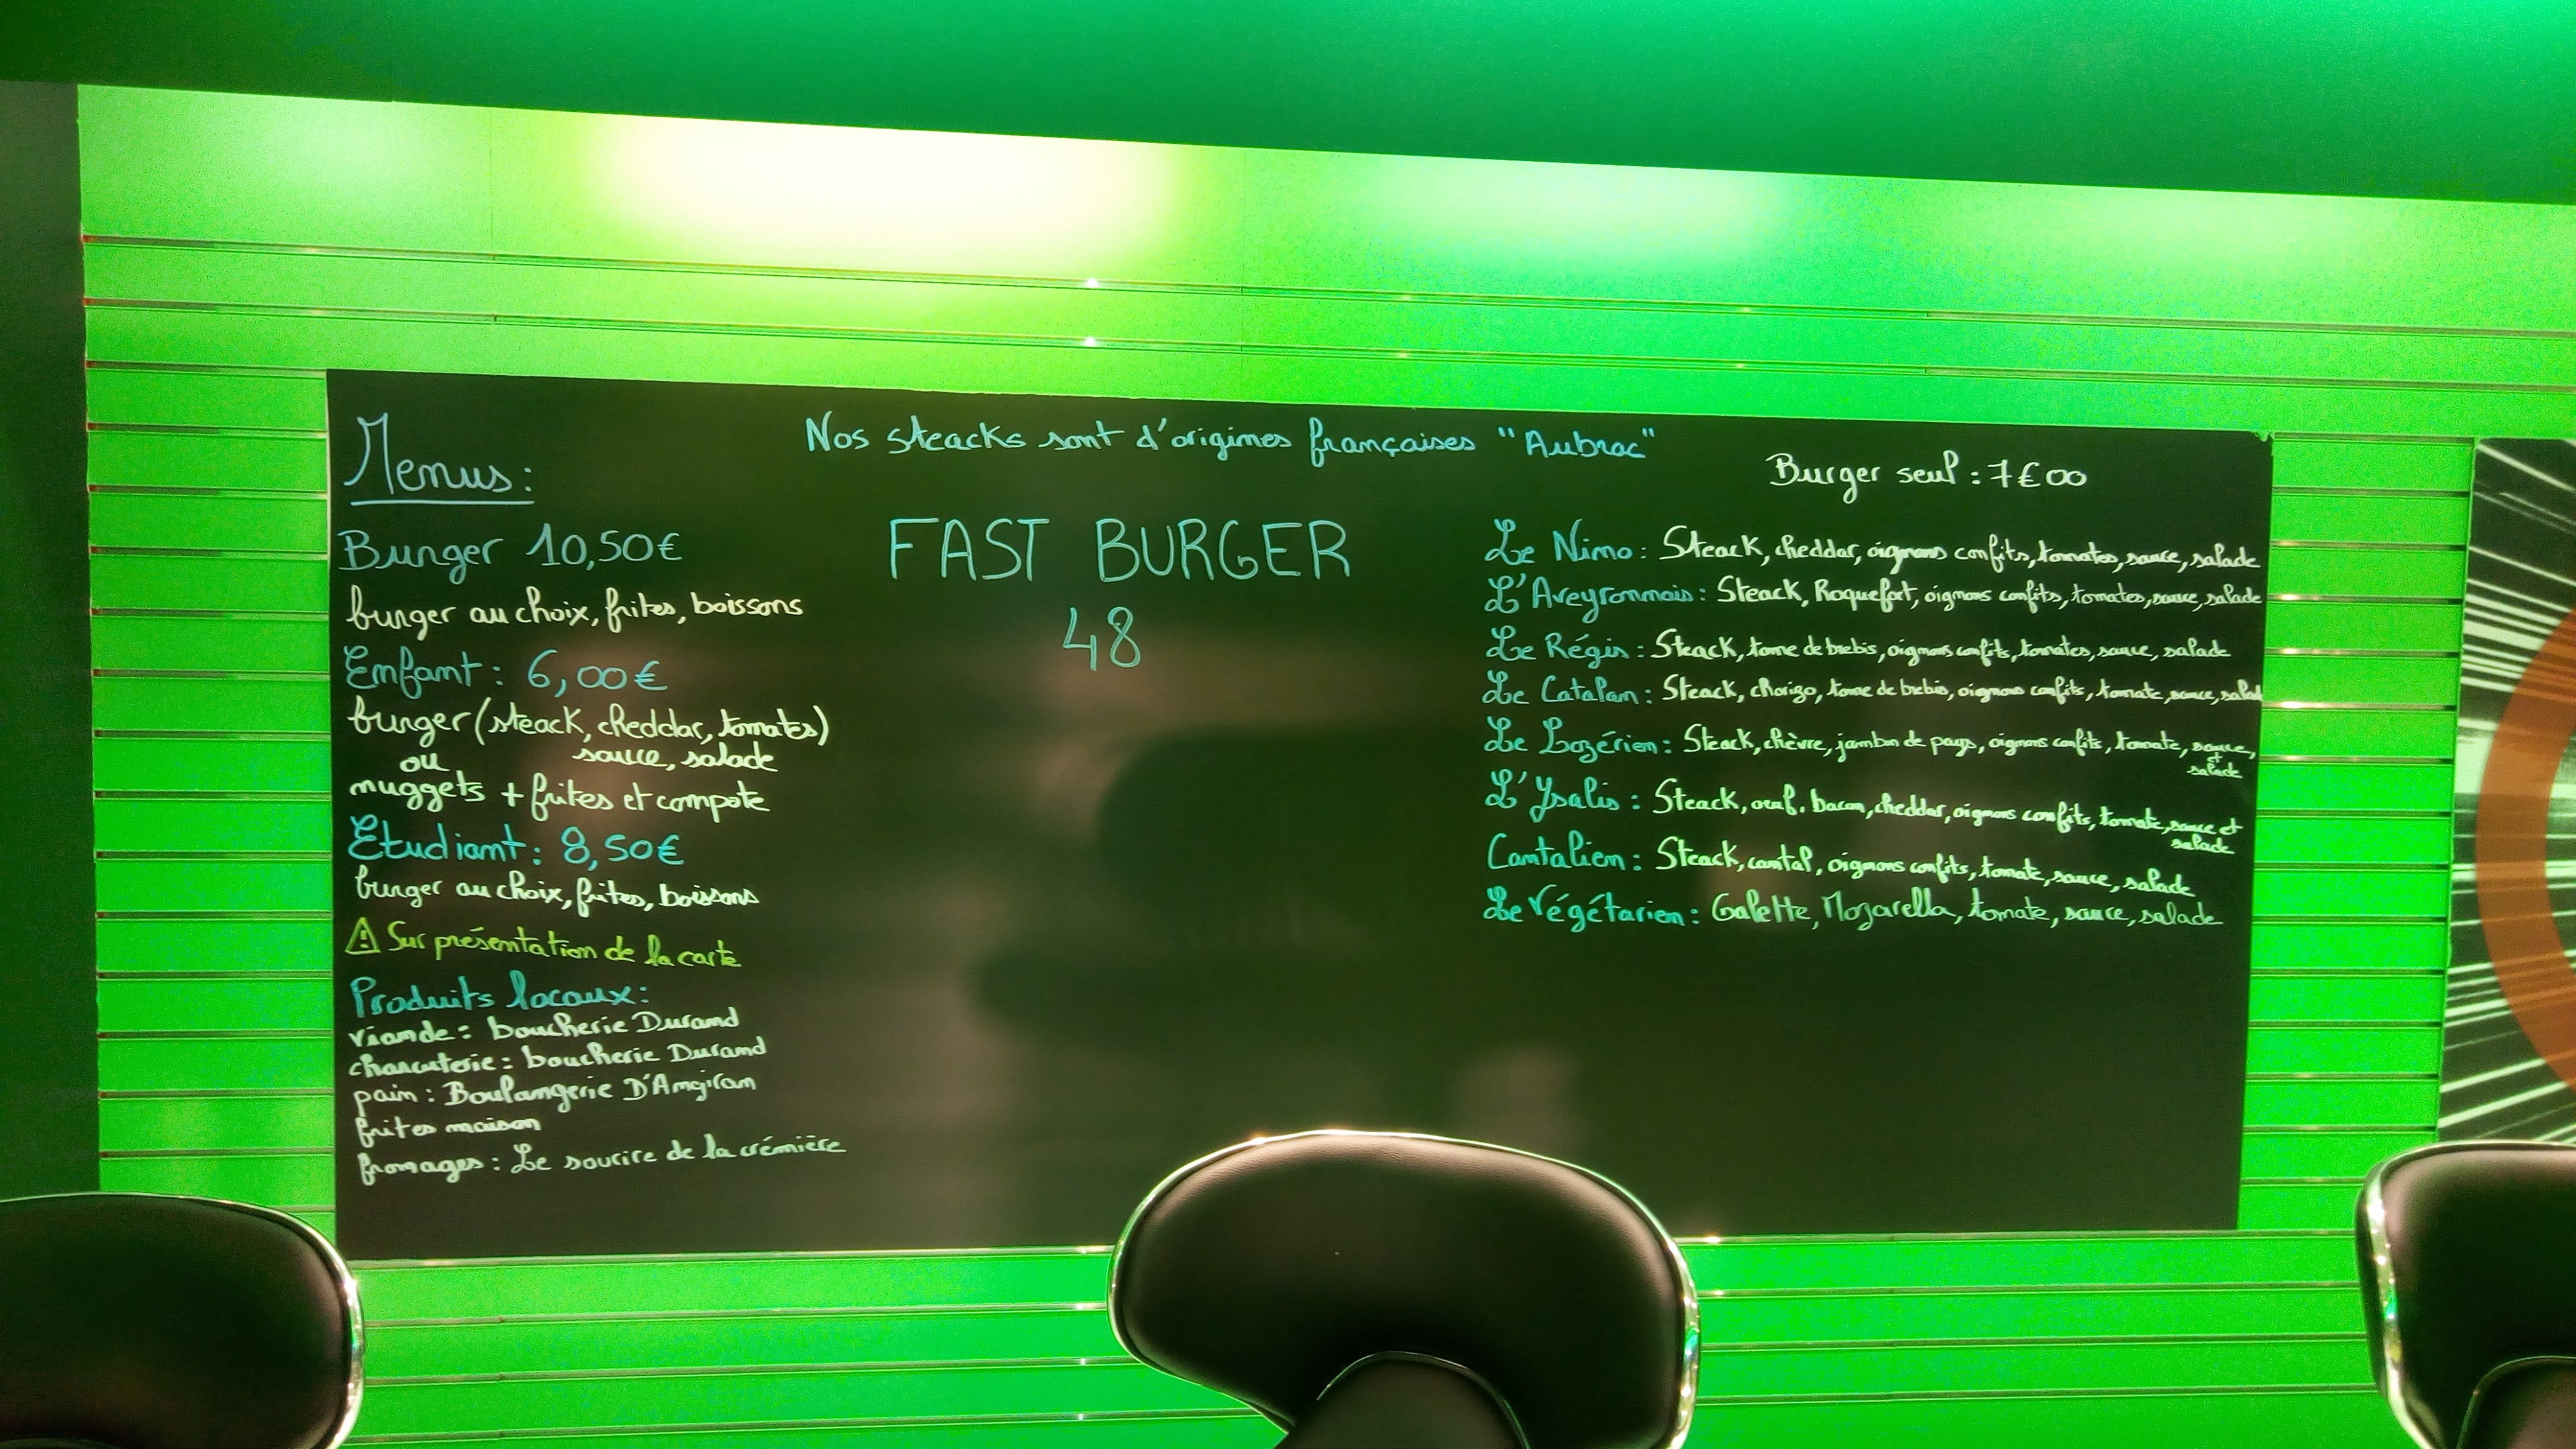 Nos steacks sont d'origines françaises "Aubrac"
FAST BURGER
48
Menus:
Burger 10,50€
burger au choix, frites, boissons
Enfant: 6,00€
burger (steack, cheddar, tomates)
ou sauce, salade
nuggets + frites et compote
Etudiant: 8,50€
burger au choix, frites, boissons
⚠ Sur présentation de la carte
Produits locaux:
viande: boucherie Durand
charcuterie: boucherie Durand
pain: Boulangerie
frites maison
fromages: Le sourire de la crémière
Burger seul: 7€00
Le Nimo: Steack, cheddar, oignons confits, tomates, sauce, salade
L'Aveyronnais: Steack, Roquefort, oignons confits, tomates, sauce, salade
Le Régis: Steack, tome de brebis, oignons confits, tomates, sauce, salade
Le Catalan: Steack, chorizo, tome de brebis, oignons confits, tomate, sauce, salad
Le Lozérien: Steack, chèvre, jambon de pays, oignons confits, tomate, sauce,
et
salade
L'Ysalis: Steack, oeuf, bacon, cheddar, oignons confits, tomate, sauce et
salade
Cantalien: Steack, cantal, oignons confits, tomate, sauce, salade
Le Végétarien: Galette, Mozarella, tomate, sauce, salade